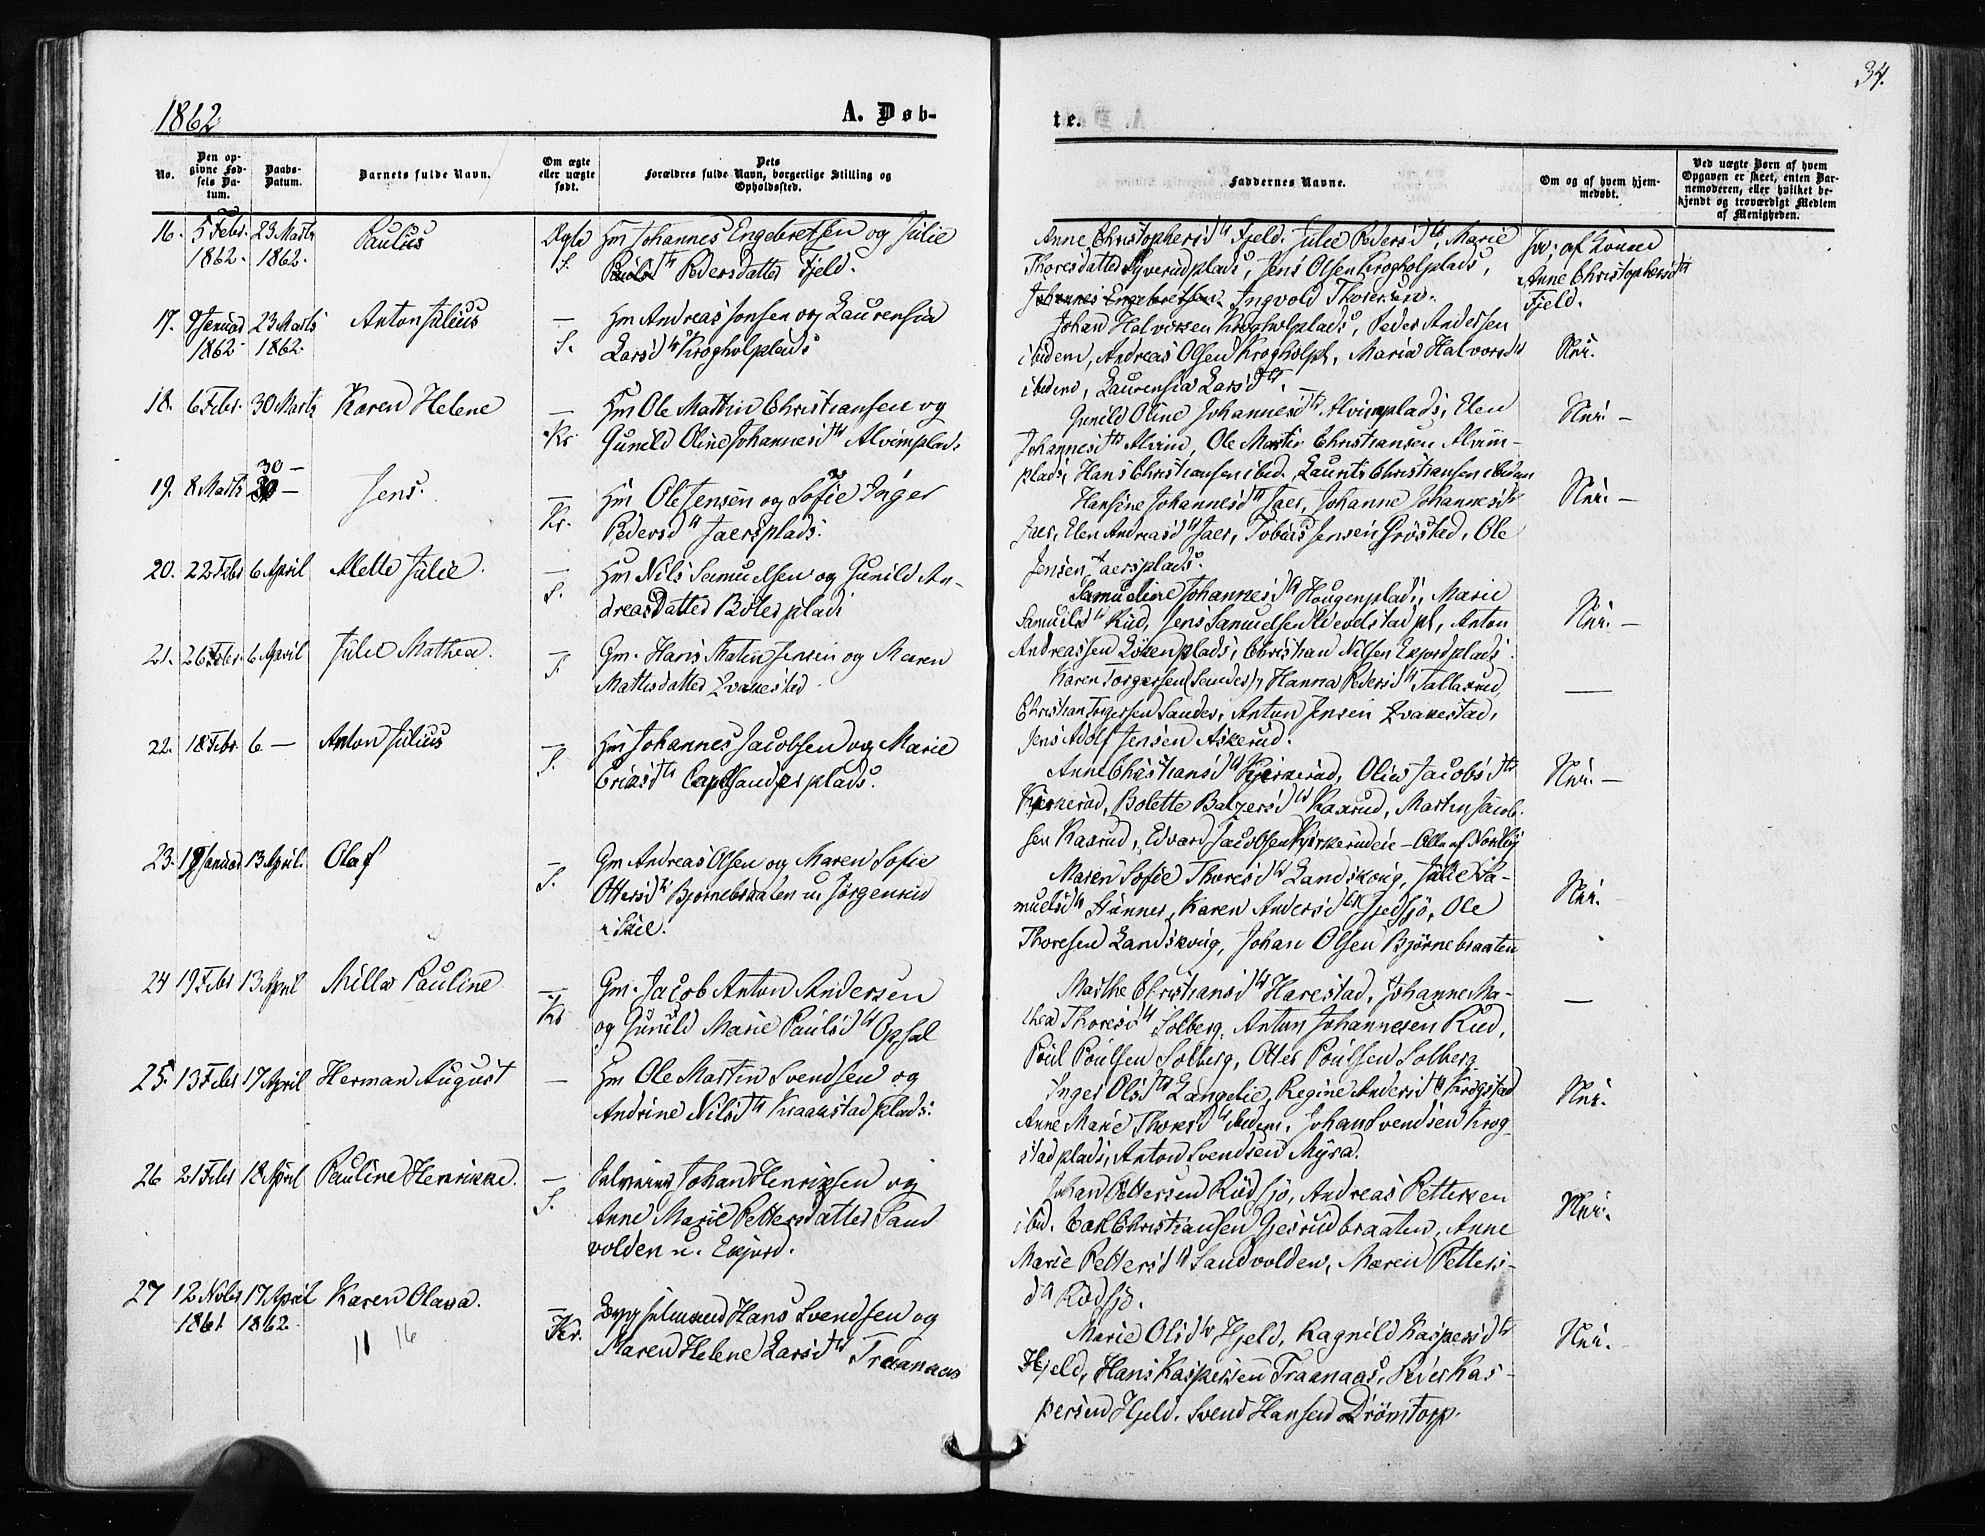 34.
1862
A. Døb-
te.
No.
Den op-
givne Fød-
sels Da-
tum.
Daabs-
Datum.
Barnets fulde Navn.
Om ægte
eller uægte
født.
Dets
Forældres fulde Navn, borgerlige Stilling og
Opholdssted.
Faddernes Navne.
Om og af hvem hjem-
medøbt.
Ved uægte Børn af hvem
Opgaven er skeet, enten Bar-
nemoderen, eller hvilket be-
kjendt og troværdigt Medlem
af Menigheden.
16. 5 Febr. 23 Marts Paulus Ægte Hm Johannes Engebretsen og Julie
1862. 1862. S. Pedersdatter Fjeld.
Anne Christophersd tr Fjeld. Julie Pedersd tr, Marie
Thoresdatter plads, Jens Olsen Krogholplads,
Johannes Engebretsen. Ingvold Thoresen.
Jw; af Konen
Anne Christophersd tr
Fjeld.
17. 9 Januar 23 Marts Anton Julius Hm Andreas Jonsen og Laurensia
1862 1862. S. Larsd tr Krogholplads
Johan Halvorsen Krogholplads, Peder Andersen
ibidem, Andreas Olsen Krogholpl, Maria Halvorsd tr
ibidem, Laurensia Larsd tr.
Nei.
18. 6 Febr. 30 Marts Karen Helene — Hm Ole Martin Christiansen og
Kr Gunild Oline Johannesd tr Alvimplads
Gunild Oline Johannesd tr Alvimplads, Elen
Johannesd tr Alvim, Ole Martin Christiansen Alvim-
plads, Hans Christiansen ibid. Laurits Christiansen ibidem
Nei. —
30 —
19. 8 Marts — Jens. — Hm Ole Jensen og Sofie Inger
Kr. Pedersd tr Jaersplads.
Hansine Johannesd tr Jaer, Johanne Johannesd tr
Jaer, Elen Andreasd tr Jaer, Tobias Jensen Grøstad, Ole
Jensen Jaersplads.
Nei. —
20. 22 Febr 6 April Alette Julie. — Hm Nils Samuelsen og Gunild An-
S. dreasdatter Bølerplads
Samueline Johannesd tr Hougenplads, Marie
Samuelsd tr Rud, Jens Samuelsen Vevelstad pl, Anton
Andreassen Løkenplads, Christian Nilsen Exjordplads.
Nei. —
21. 26 Febr. 6 April Julie Mathea. — Gm. Hans Martin Jensen og Maren
Mattisdatter Kvakestad.
Karen Torgersen (Sandes), Hanna Pedersd tr Tallaxrud,
Christian Torgersen Sandes, Anton Jensen Kvakestad,
Jens Adolf Jensen Askerud.
—
22. 18 Febr 6 — Anton Julius — Hm Johannes Jacobsen og Marie
S. Ericksd tr plads.
Anne Christiansd tr Kjerkerud, Olive Jacobsd tr
Kjerkerud, Bolette Balzersd tr Kaxrud, Martin Jacob-
sen Kaxrud, Edvard Jacobsen
Nei. —
23. 19 Januar 13 April. Olaf — Gm Andreas Olsen og Maren Sofie
S. Ottersd tr Bjørnebraaten u. Jørgensrud
i Skie.
Maren Sofie Thoresd tr Landskoug, Julie Sa-
muelsd tr Stunner, Karen Andersd tr Gjedsjø, Ole
Thoresen Landskoug, Johan Olsen Bjørnebraaten
Nei.
24 19 Febr 13 April Milla Pauline — Gm. Jacob Anton Andersen
Kr og Gunild Marie Paulsd tr Opsal
Marthe Christiansd tr Harestad, Johanne Ma-
thea Thoresd tr Solberg, Anton Johannesen Rud,
Poul Poulsen Solberg, Otter Poulsen Solberg
—
25. 13 Febr 17 April Herman August — Hm Ole Martin Svendsen og
Andrine Nilsd tr Kraakstad plads.
Inger Olsd tr Langelie, Regine Andersd tr Krogstad
Anne Marie Thoresd tr ibidem, Johan Svendsen Krog-
stadplads, Anton Svendsen Myra.
Nei.
26 21 Febr 18 April Pauline Henrikke. — Johan Henriksen og
S. Anne Marie Pettersdatter Sand
volden u. Exjord.
Johan Pettersen Rødsjø, Andreas Pettersen
ibid. Carl Christiansen Gjesrudbraaten, Anne
Marie Pettersd tr Sandvolden, Maren Petters-
d tr Rødsjø.
Nei.
27 12 Novbr 17 April Karen Olava. — Hans Svendsen og
1861. 1862 Kr. Maren Helene Larsd tr Traanaas
11 16
Marie Olsd tr Hjeld, Ragnild Kaspersd tr
Hjeld, Hans Kaspersen Traanaas, Peder Kas-
persen Hjeld. Svend Hansen Drømtorp.
Nei.